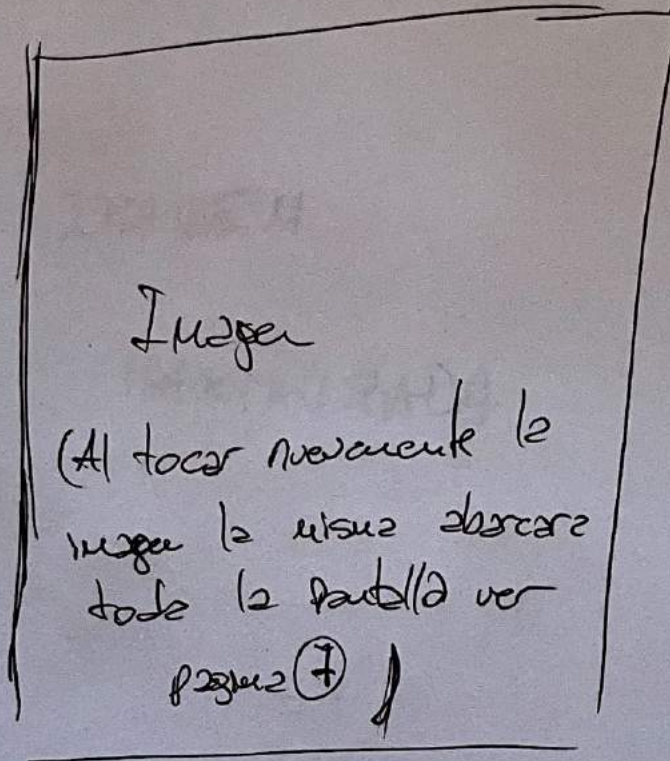 Imagen
(Al tocar nuevamente la
imagen la misma abarcara
toda la pantalla ver
pagina 7)